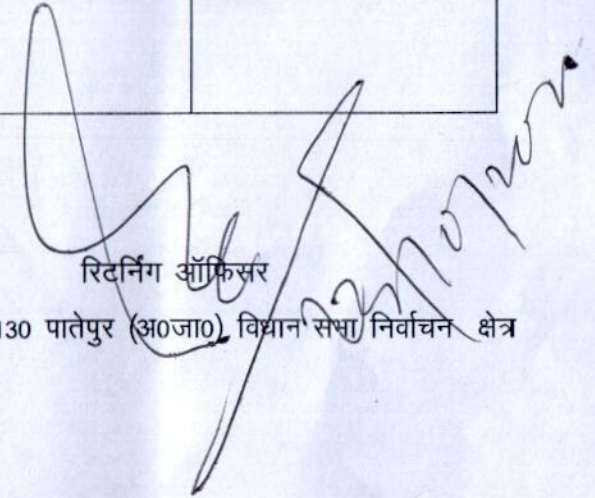 रिटर्निंग ऑफिसर
130 पातेपुर (अ0जा0) विधान सभा निर्वाचन क्षेत्र